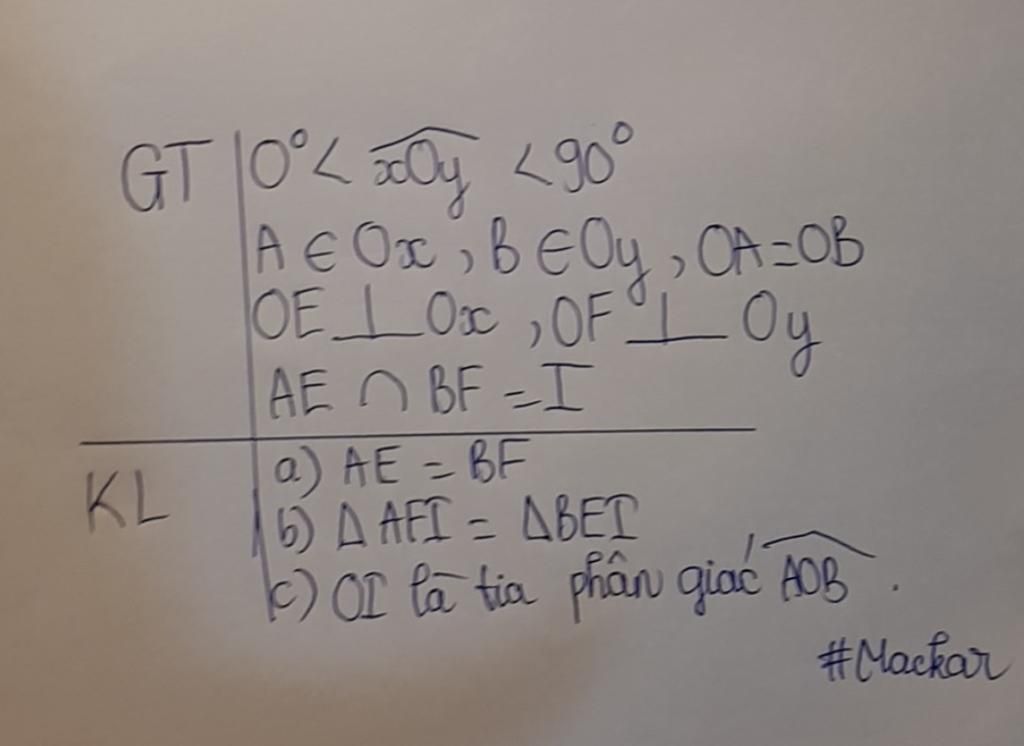 GT 0° < xOy < 90°
A ∈ Ox, B ∈ Oy, OA = OB
OE ⊥ Ox, OF ⊥ Oy
AE ∩ BF = I
KL a) AE = BF
b) Δ AFI = ΔBEI
c) OI là tia phân giác AOB.
#Mackar